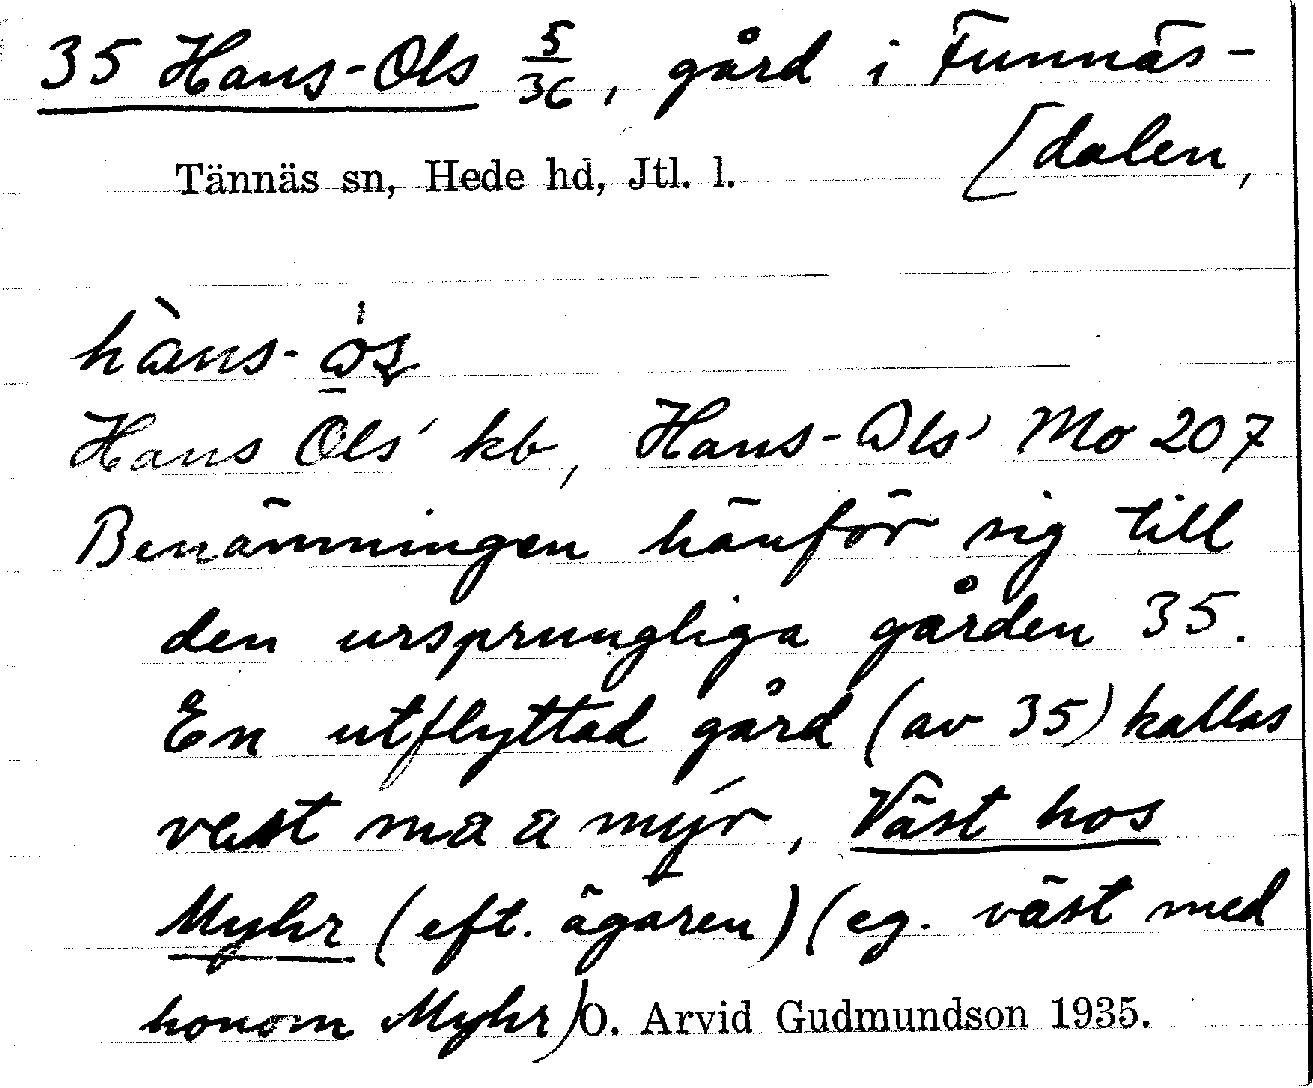 35 Hans-Ols 5/36, gård i Funnäs-
[dalen,
Tännäs sn, Hede hd, Jtl. l.
hàns-
Hans Ols' kb, Hans-Ols' Mo 207
Benämningen hänför sig till
den ursprungliga gården 35.
En utflyttad gård (av 35) kallas
vest ma a mýr, Väst hos
Myhr (eft. ägaren) (eg. väst med
honom Myhr) O. Arvid Gudmundson 1935.